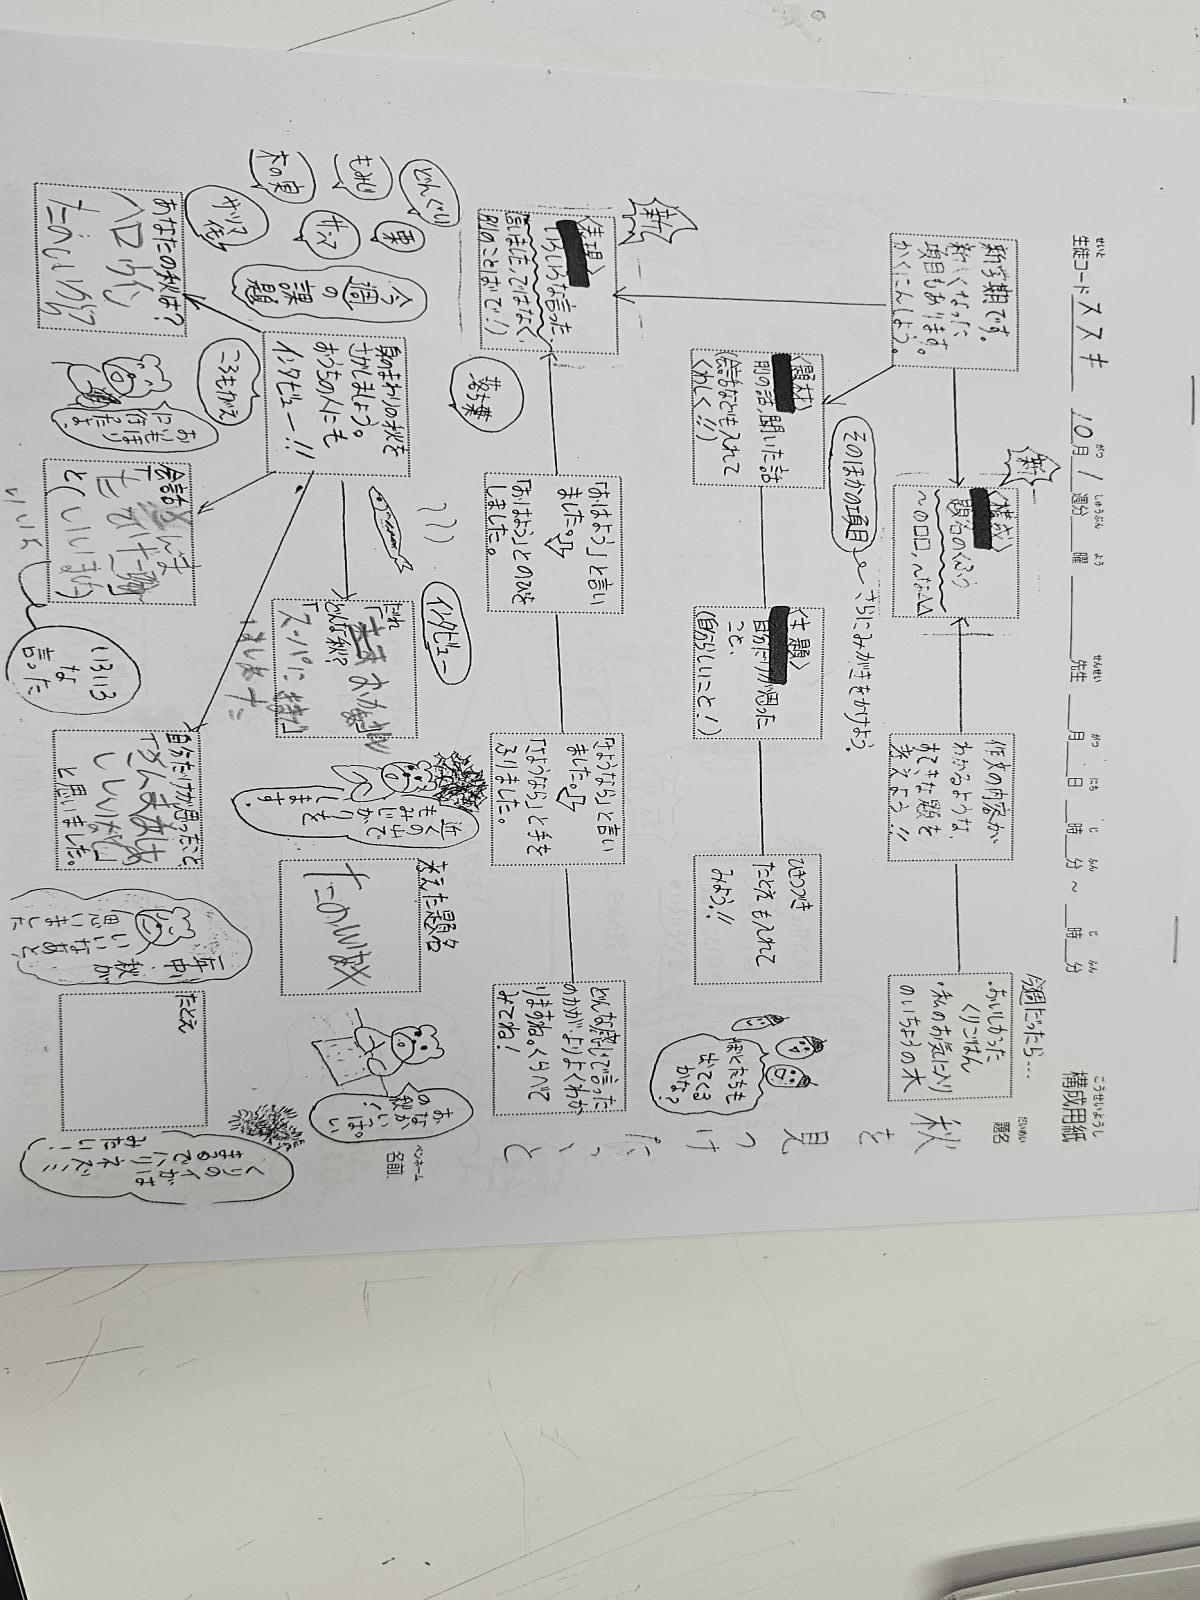 構成用紙
こうせいようし
生徒コード ススキ 10月 1週分 曜 先生 月 日 時 分 〜 時 分
せいと
がつ しゅうぶん よう せんせい がつ にち じ ふん じ ふん
題名
だいめい
秋を見つけ
ペンネーム
名前
新学期です。
新しくなった
項目もあります。
かくにんしよう。
新
〈構成〉
題名のくふう
〜の口口、〜な△△
作文の内容が
わかるような、
すてきな題を
考えよう!!
今週だったら…
・おいしかった
くりごはん
・私のお気に入り
のいちょうの木
そのほかの項目
さらにみがきをかけよう。
〈題材〉
前の話、聞いた話
(会話なども入れて
くわしく!!)
〈主題〉
自分だけが思った
こと、
(自分らしいこと!)
ひきつづき
たとえも入れて
みよう!!
ぼくたちも
出てくる
かな?
新
〈表現〉
いろいろな言った
言いました。ではなく、
別のことばで!)
「おはよう」と言い
ました。
「おはよう」とのびを
しました。
「さようなら」と言い
ました。
「さようなら」と手を
ふりました。
どんな感じで言った
のかが、よりよくわか
りますね。くらべて
みてね!
どんぐり
もみじ
木の実
栗
サンマ
サツマ
落ち葉
ころもがえ
今週の課題
身のまわりの秋を
さがしましょう。
おうちの人にも
インタビュー!!
インタビュー
だれ
どんな秋?
近くの山で
もみじがり
をします。
考えた題名
おなか
いっぱい
の秋!
あなたの秋は?
ハロウィン
おいもほり
に行った
よ。
会話
いろいろ
な
言った
自分だけが思ったこと
と思いました。
一年中
秋が
いいなあと
思いました
たとえ
くりのイガは
まるでハリネズミ
みたい!